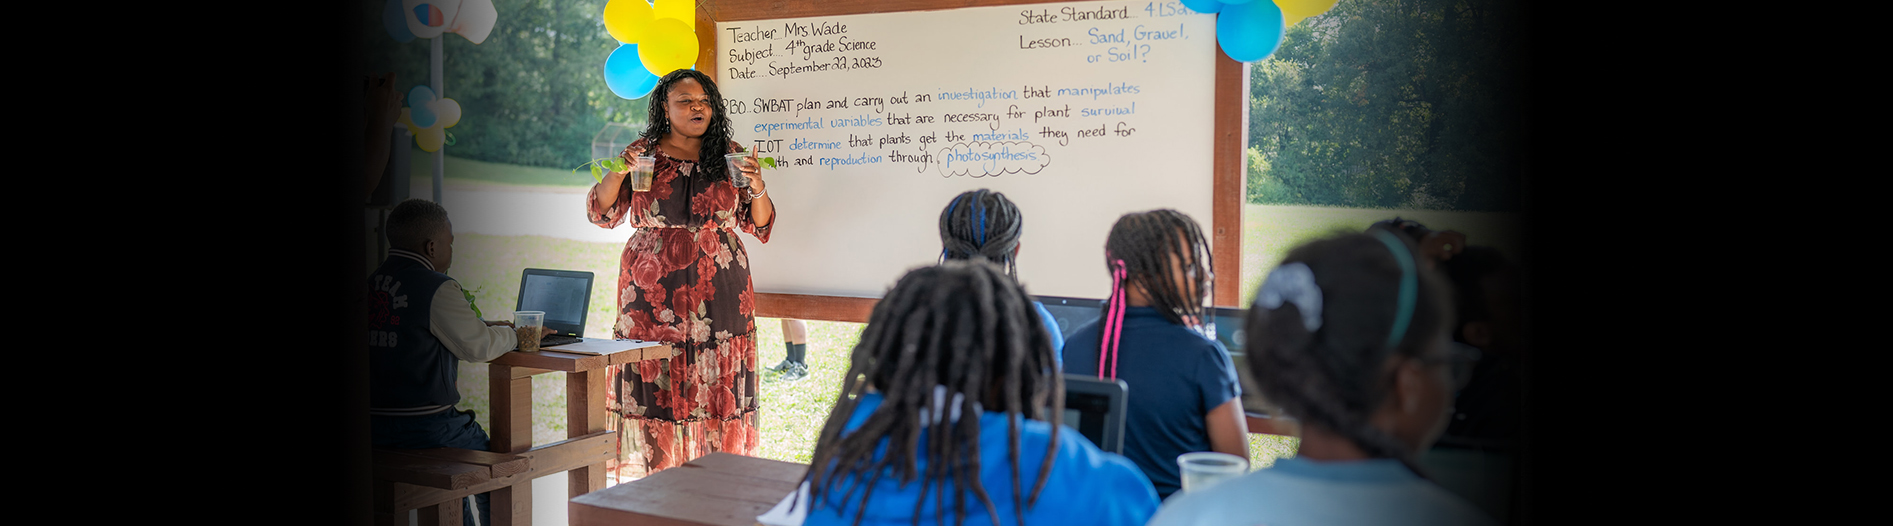 Teacher... Mrs Wade
Subject.... 4th grade Science
Date.... September 22, 2023
State Standard.... 4.LS2
Lesson.... Sand, Gravel,
or Soil?
BO... SWBAT plan and carry out an investigation that manipulates
experimental variables that are necessary for plant survival
IOT determine that plants get the materials they need for
th and reproduction through photosynthesis.
TEAM
ERS